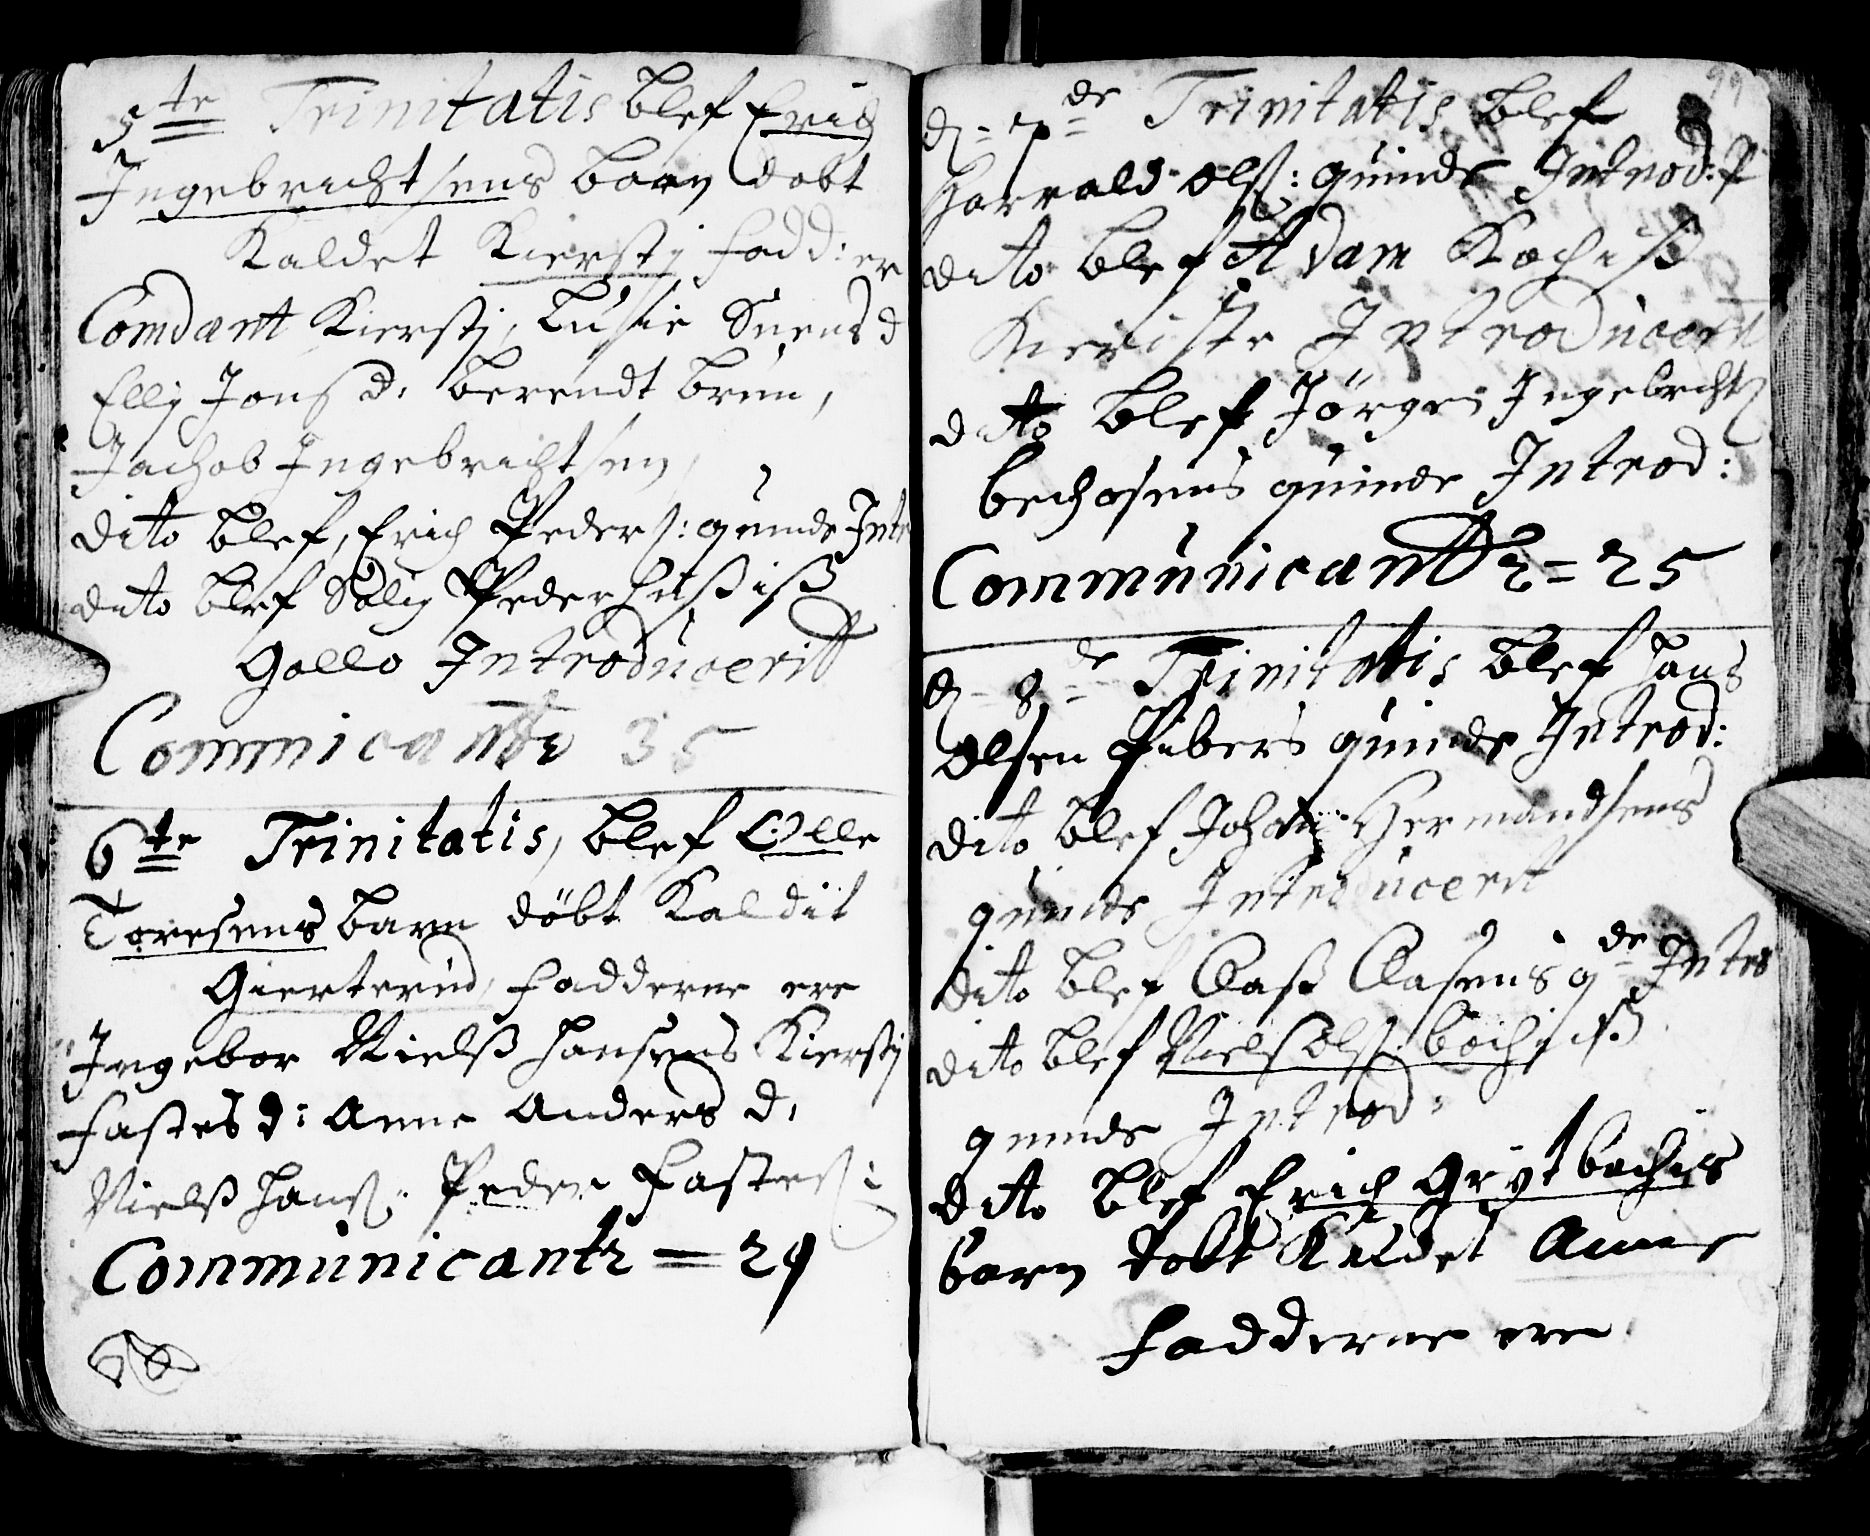 5te Trinitatis blef Erich
Ingebrichtsens barn døbt
Kaldet Kiersti fadd: er
Comdant Kiersti, Lusie Suensd
Elli Jonsd: berendt brun,
Jachob Ingebrichtsen,
dito blef, Erich Peders: quinde Intr
dito blef Salig Peder
Gallo Introducerit
Commicantr 35
6te Trinitatis, blef Olle
Toresens barn döbt Kaldit
Gierterud, fadderne ere
Ingebor Nielss Hansens Kiersti
fastesd: Anne Andersd,
Nielss Hans: Peder Fastes:
Communicantr = 29
99
d= 7de Trinitatis blef
Harrald Ols: quinde Introd:
dito blef Adam Kochiss
Introducerit
dito blef Jörgen Ingebrichts
bechosens quinde Introd:
Communicantr = 25
d= 8de Trinitatis blef Hans
Olsen Pibers quinde Introd:
dito blef Johan Hermandsens
quinde Introducerit
dito blef Class Clasens qde Intro
dito blef Niels Ols:
quinde Introd:
dito blef Erich Grytbachis
barn døbt Kaldet Anne
Fadderne ere